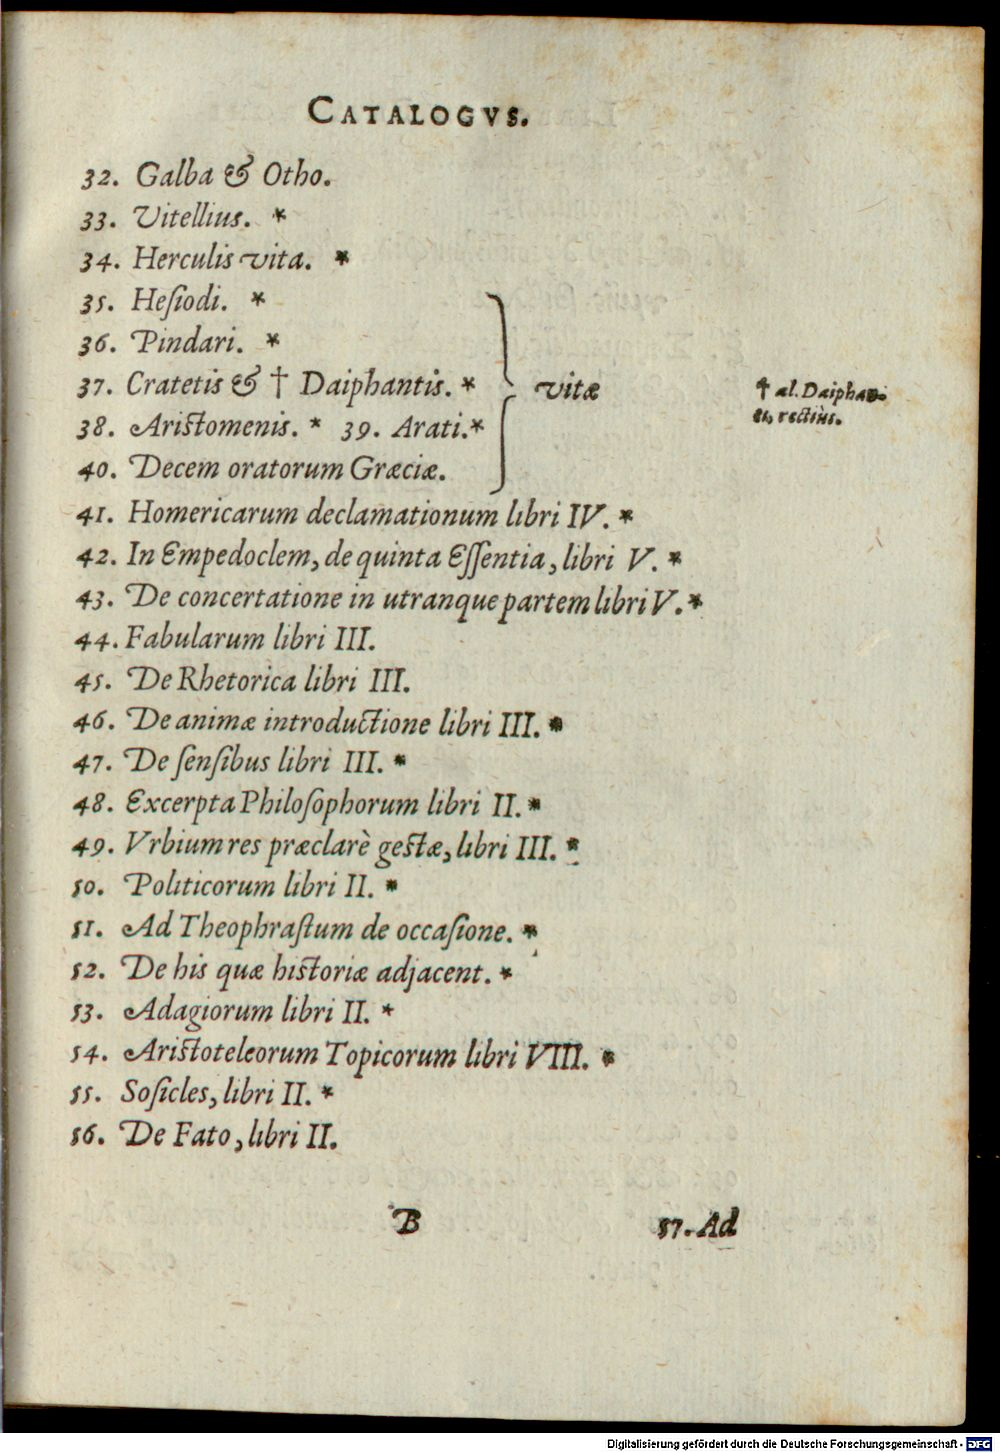 CATALOGVS.
32. Galba & Otho.
33. Vitellius. *
34. Herculis vita. *
35. Heſiodi. *
36. Pindari. *
37. Cratetis & † Daiphantis. *
vitæ
† al. Daipha
rectiùs.
38. Aristomenis. * 39. Arati.*
40. Decem oratorum Græciæ.
41. Homericarum declamationum libri IV. *
42. In Empedoclem, de quinta Eſſentia, libri V. *
43. De concertatione in utranque partem libri V. *
44. Fabularum libri III.
45. De Rhetorica libri III.
46. De animæ introductione libri III. *
47. De ſenſibus libri III. *
48. Excerpta Philoſophorum libri II. *
49. Vrbium res præclarè gestæ, libri III. *
50. Politicorum libri II. *
51. Ad Theophraſtum de occaſione. *
52. De his quæ historiæ adjacent. *
53. Adagiorum libri II. *
54. Aristoteleorum Topicorum libri VIII. *
55. Soſicles, libri II. *
56. De Fato, libri II.
B
57. Ad
Digitalisierung gefördert durch die Deutsche Forschungsgemeinschaft - DFG